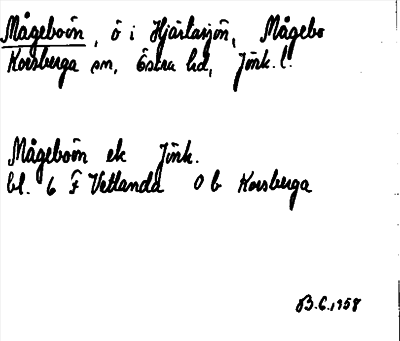 Mågeboön, ö i Hjärtasjön, Mågebo
Korsberga sn, Östra hd, Jönk. l.
Mågeboön ek Jönk.
bl. 6 F Vetlanda 0 b Korsberga
B.G. 1958